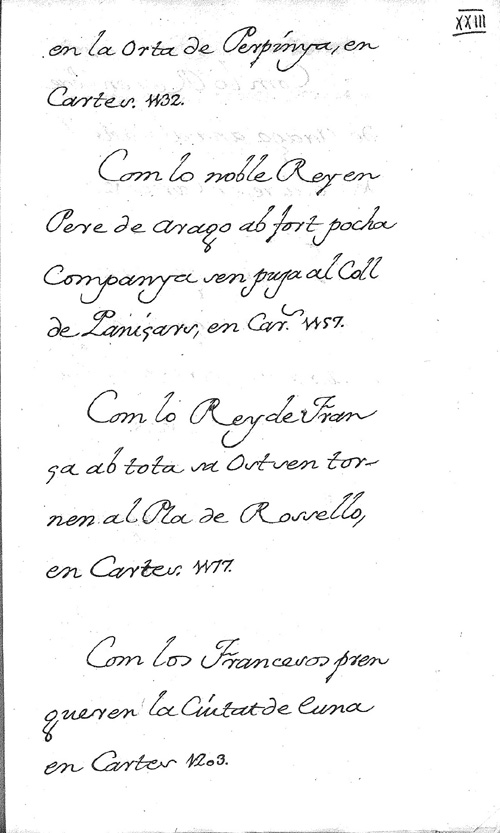 XXIII
en la Orta de Perpínya, en
Cartes. 1132.
Com lo noble Rey en
Pere de arago ab fort pocha
Companya sen puja al Coll
de Panisars, en Car.^s 1157.
Com lo Rey de Fran
ça ab tota sa Ost sen tor-
nen al Pla de Rossello,
en Cartes. 1177.
Com los Francesos pren
gueren la Ciutat de Euna
en Cartes 1203.